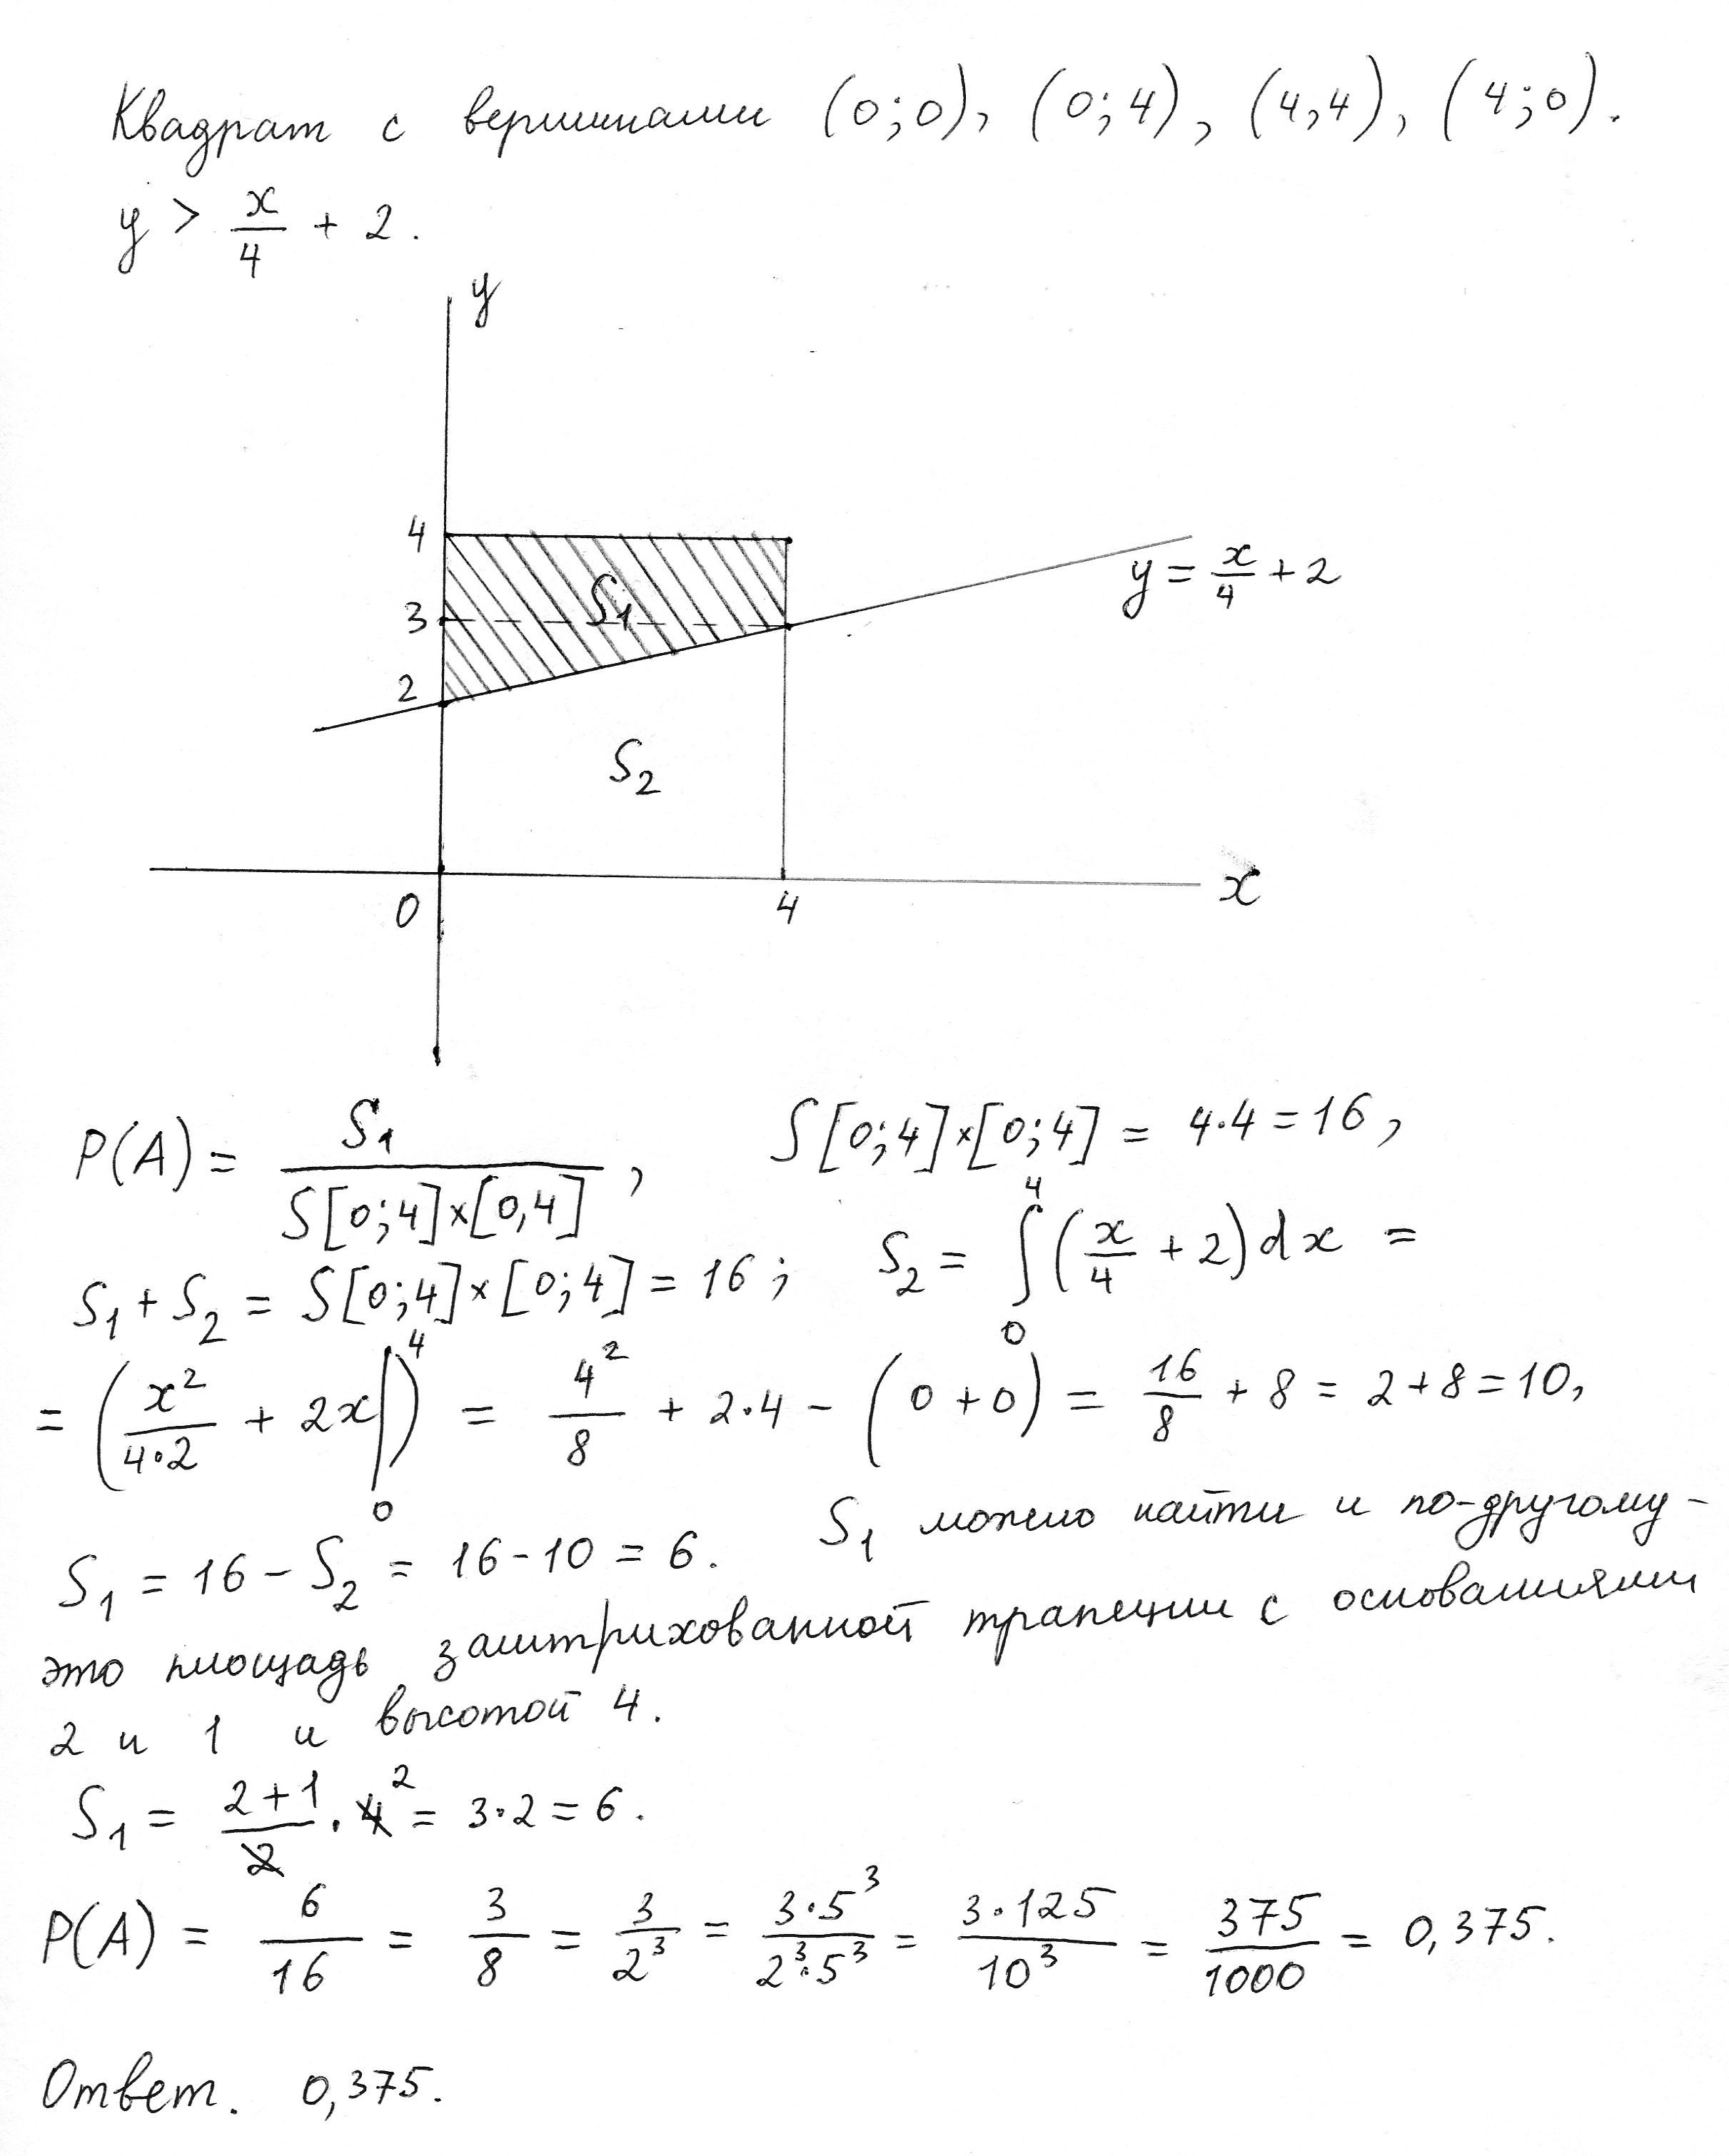 Квадрат с вершинами (0;0), (0;4), (4,4), (4;0).
y > x/4 + 2.
y
4
3
S₁
y = x/4 + 2
2
S₂
0
4
x
P(A) = S₁ / S[0;4]×[0,4] , S[0;4]×[0;4] = 4·4 = 16,
S₁ + S₂ = S[0;4]×[0;4] = 16; S₂ = ∫₀⁴ (x/4 + 2) dx =
= (x²/4·2 + 2x|)₀⁴ = 4²/8 + 2·4 − (0 + 0) = 16/8 + 8 = 2 + 8 = 10,
S₁ = 16 − S₂ = 16 − 10 = 6. S₁ можно найти и по-другому -
это площадь заштрихованной трапеции с основаниями
2 и 1 и высотой 4.
S₁ = 2+1/2 · 4² = 3·2 = 6.
P(A) = 6/16 = 3/8 = 3/2³ = 3·5³/2³·5³ = 3·125/10³ = 375/1000 = 0,375.
Ответ. 0,375.